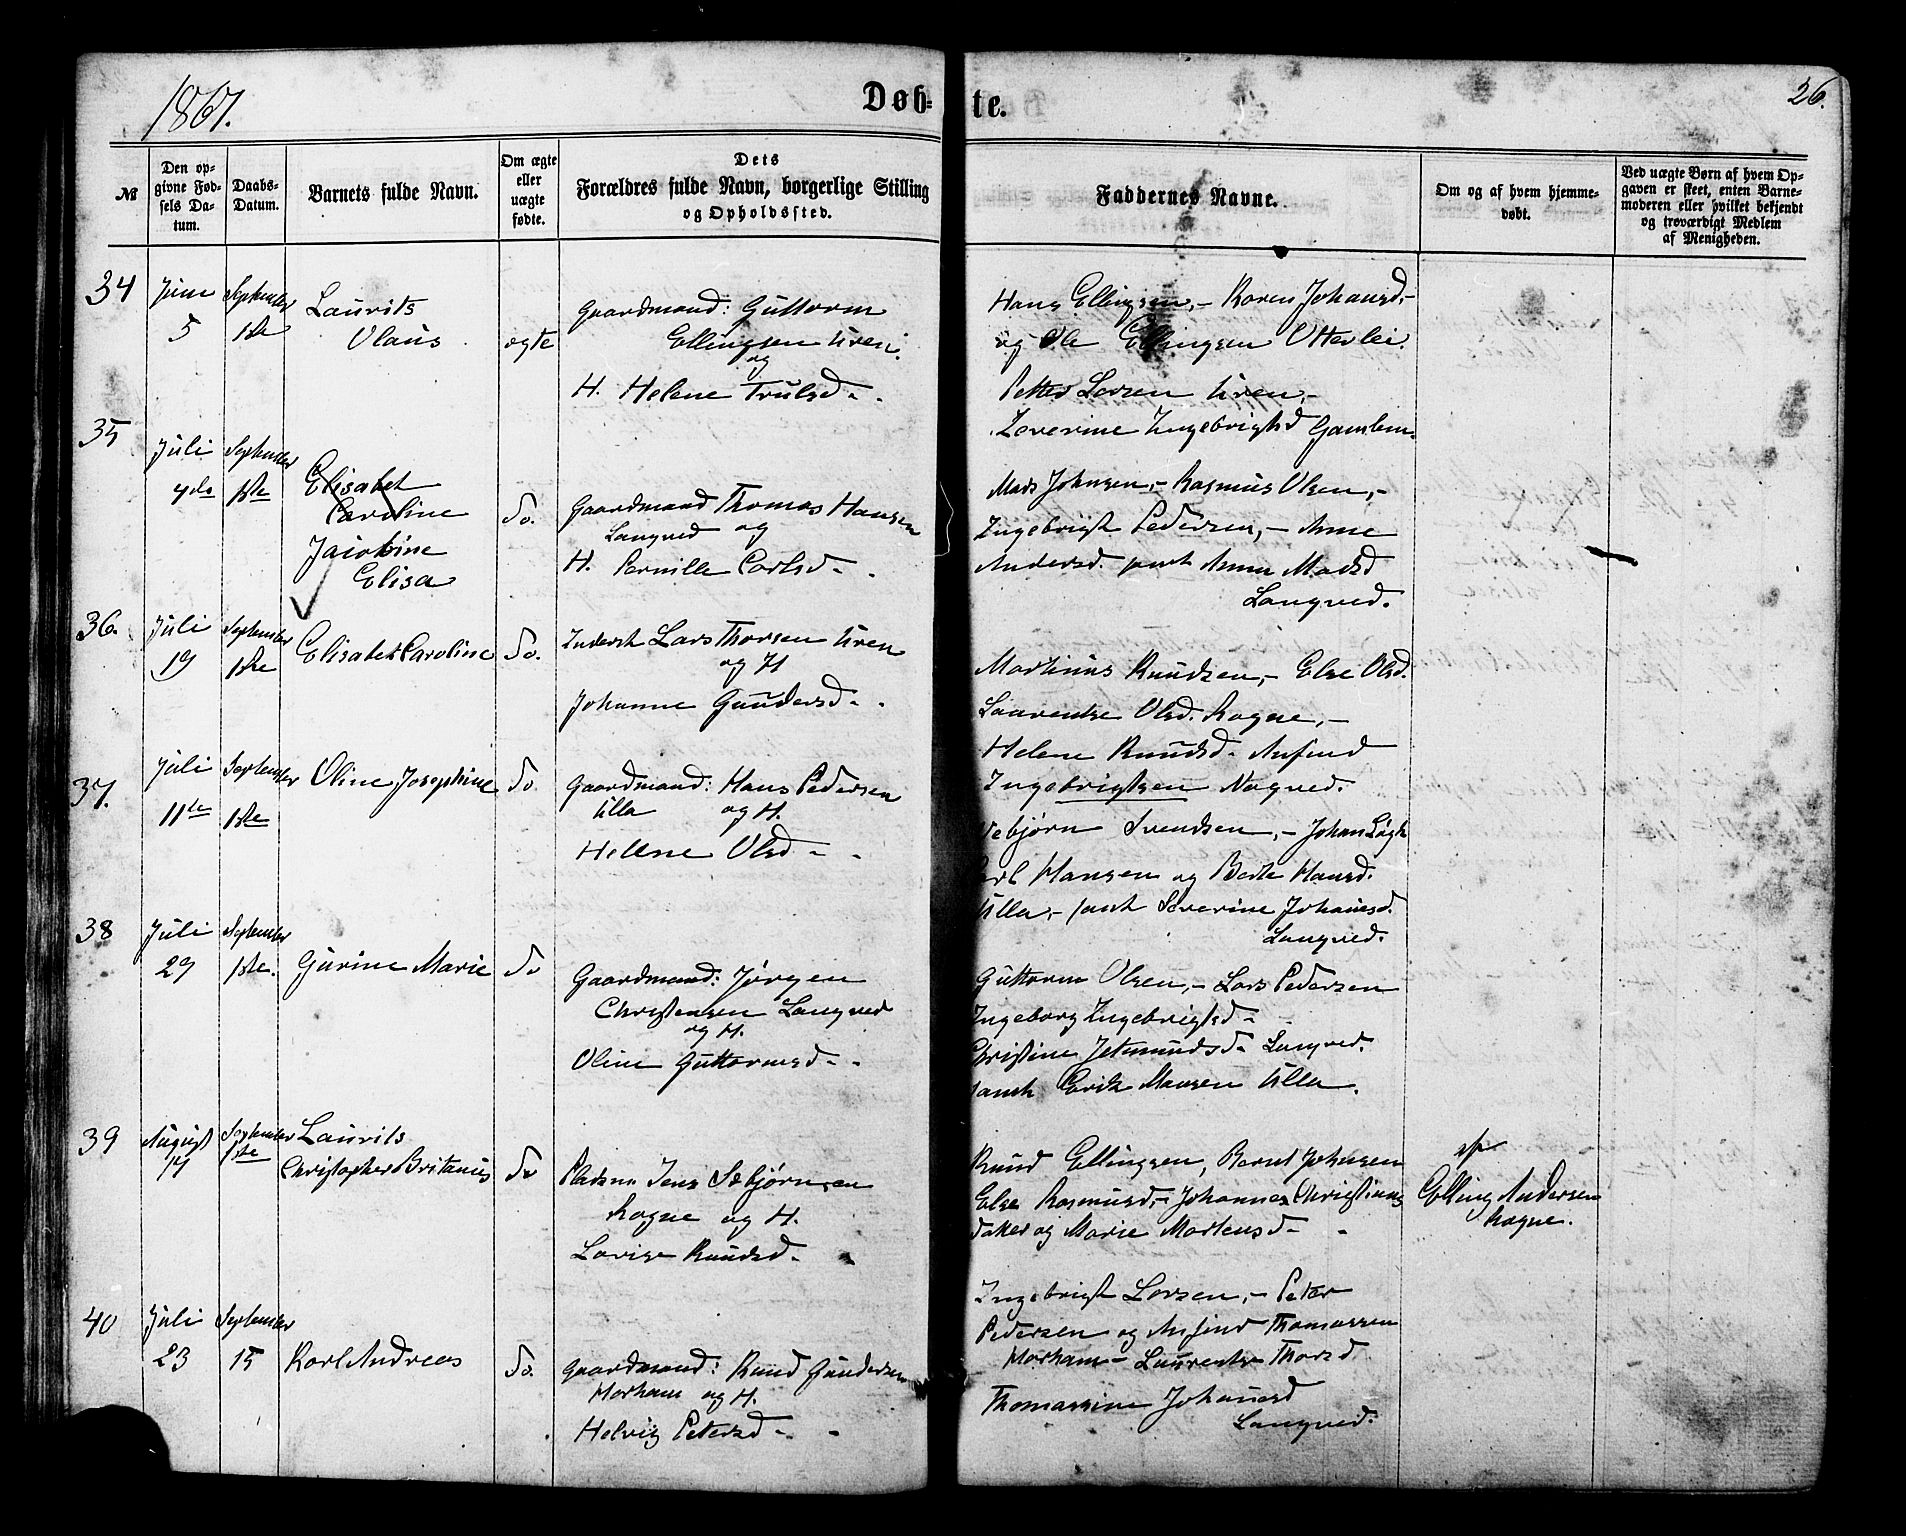 1867.
Døb-
te.
26.
№
Den op-
givne Fød-
sels Da-
tum.
Daabs-
Datum.
Barnets fulde Navn.
Om ægte
eller
uægte
fødte.
Dets
Forældres fulde Navn, borgerlige Stilling
og Opholdssted.
Faddernes Navne.
Om og af hvem hjemme-
døbt.
Ved uægte Børn af hvem Op-
gaven er skeet, enten Barne-
moderen eller hvilket bekjendt
og troværdigt Medlem
af Menigheden.
34
Juni
5
September
1ste
Laurits
Olaus
ægte
Gaardmand: Guttorm
Ellingsen Uren
og
H. Helene Trulsd -
Hans Ellingsen, - Karen Johansd, -
og Ole Ellingsen Otterlei.
Petter Larsen Uren, -
Zeverine Ingebrigtsd Gamlem.
35
Juli
4de
September
1ste
Elisabet
Caroline
Jacobine
Elisa
do.
Gaardmand Thomas Hansen
Langved og
H. Pernille Carlsd -
Mads Johnsen, - Rasmus Olsen, -
Ingebrigt Pedersen, - Anne
Andersd. samt Anna Madsd
Langved.
36.
Juli
19
September
1ste
Elisabet Caroline
do.
Inderst Lars Thorsen Uren
og H
Johanne Gundersd -
Martinus Knudsen, - Else Olsd.
Laurentse Olsd. Rogne, -
Helene Knudsd. Anfind
Ingebrigtsen Nogved.
37.
Juli
11te
September
1ste
Oline Josephine
do
Gaardmand: Hans Pedersen
Ulla og H.
Hellene Olsd -
Vebjørn Svendsen, - Johan
Hansen og Berte Hansd.
Ulla, - samt Severine Johansd.
Langved.
38
Juli
29
September
1ste.
Gurine Marie
do
Gaardmand: Jørgen
Christensen Langved
og H.
Oline Guttormsd -
Guttorm Olsen, - Lars Pedersen
Ingeborg Ingebrigtsd -
Christine Jetmundsd - Langved.
samt Erik Hansen Ulla.
39
August
14
September
1ste
Laurits
Christopher Britanus
do
Pladsm. Jens Sebjørnsen
Rogne og H.
Lovise Knudsd -
Knud Ellingsen, Bernt Johnsen
Else Rasmusd, - Johannes Christians
og Marie Mortensd -
af
Elling Andersen
Rogne.
40
Juli
23
September
15
Karl Andreas
do.
Gaardmand: Knud Gundersen
Harham og H.
Helvig Petersd -
Ingebrigt Larsen, - Peter
Pedersen og Anfind Thomassen
Harham - Laurentse Thorsd
Thomassine Johansd
Langved.